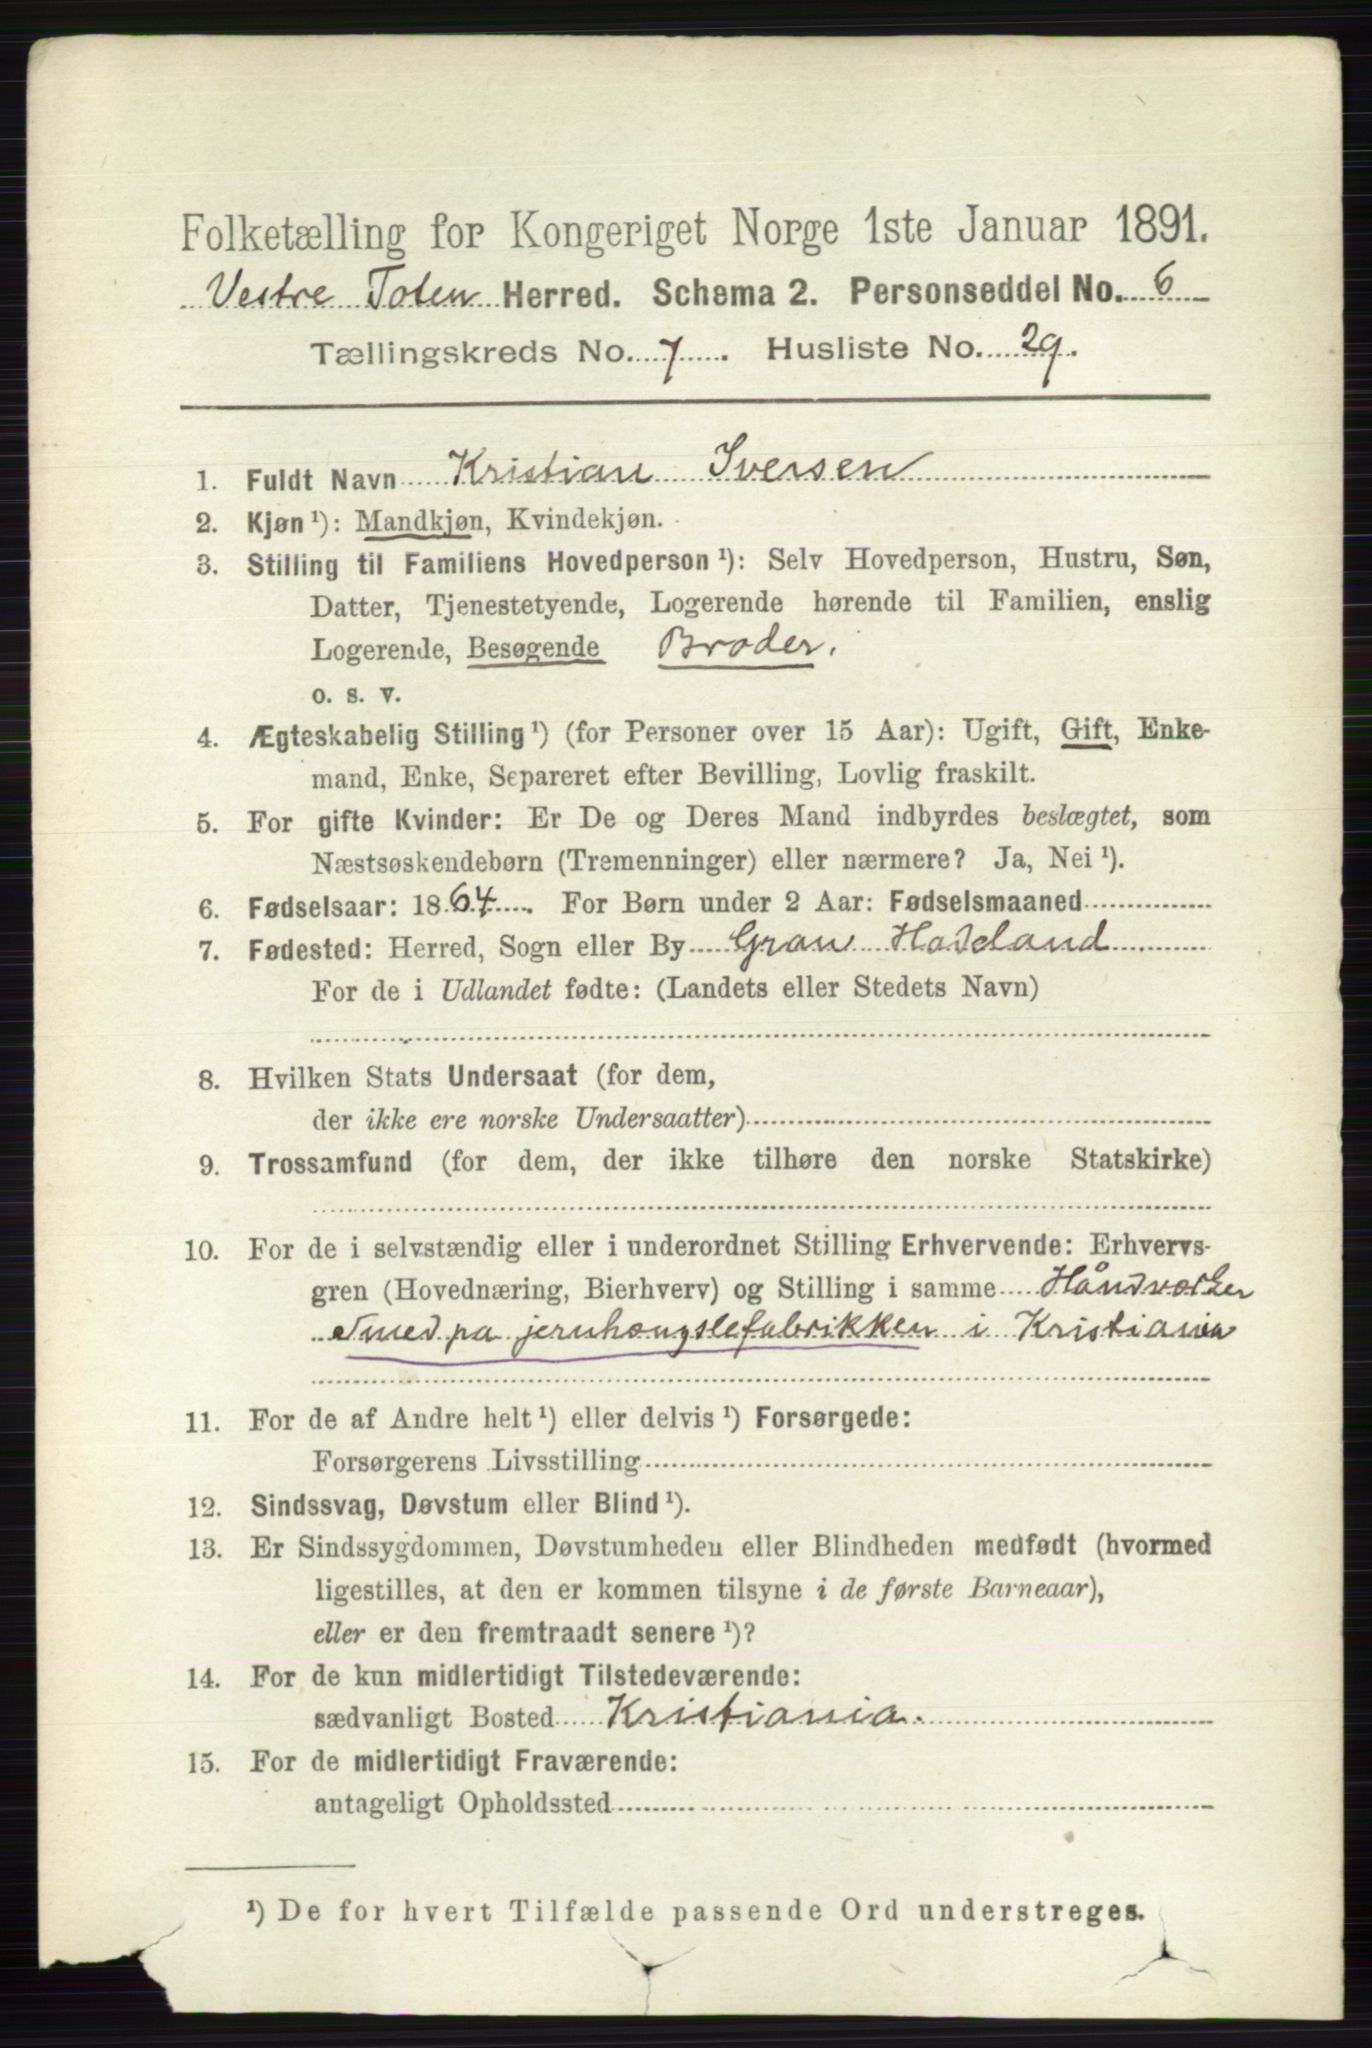 Folketælling for Kongeriget Norge 1ste Januar 1891.
Vestre Toten Herred. Schema 2. Personseddel No. 6
Tællingskreds No. 7. Husliste No. 29.
1. Fuldt Navn Kristian Iversen
2. Kjøn ¹): Mandkjøn, Kvindekjøn.
3. Stilling til Familiens Hovedperson ¹): Selv Hovedperson, Hustru, Søn,
Datter, Tjenestetyende, Logerende hørende til Familien, enslig
Logerende, Besøgende Broder.
o. s. v.
4. Ægteskabelig Stilling ¹) (for Personer over 15 Aar): Ugift, Gift, Enke-
mand, Enke, Separeret efter Bevilling, Lovlig fraskilt.
5. For gifte Kvinder: Er De og Deres Mand indbyrdes beslægtet, som
Næstsøskendebørn (Tremenninger) eller nærmere? Ja, Nei ¹).
6. Fødselsaar: 1864. For Børn under 2 Aar: Fødselsmaaned
7. Fødested: Herred, Sogn eller By Gran Hadeland
For de i Udlandet fødte: (Landets eller Stedets Navn)
8. Hvilken Stats Undersaat (for dem,
der ikke ere norske Undersaatter)
9. Trossamfund (for dem, der ikke tilhøre den norske Statskirke)
10. For de i selvstændig eller i underordnet Stilling Erhvervende: Erhvervs-
gren (Hovednæring, Bierhverv) og Stilling i samme Håndværker
Smed pa jernhængslefabrikken i Kristiania
11. For de af Andre helt ¹) eller delvis ¹) Forsørgede:
Forsørgerens Livsstilling
12. Sindssvag, Døvstum eller Blind ¹).
13. Er Sindssygdommen, Døvstumheden eller Blindheden medfødt (hvormed
ligestilles, at den er kommen tilsyne i de første Barneaar),
eller er den fremtraadt senere ¹)?
14. For de kun midlertidigt Tilstedeværende:
sædvanligt Bosted Kristiania.
15. For de midlertidigt Fraværende:
antageligt Opholdssted
¹) De for hvert Tilfælde passende Ord understreges.